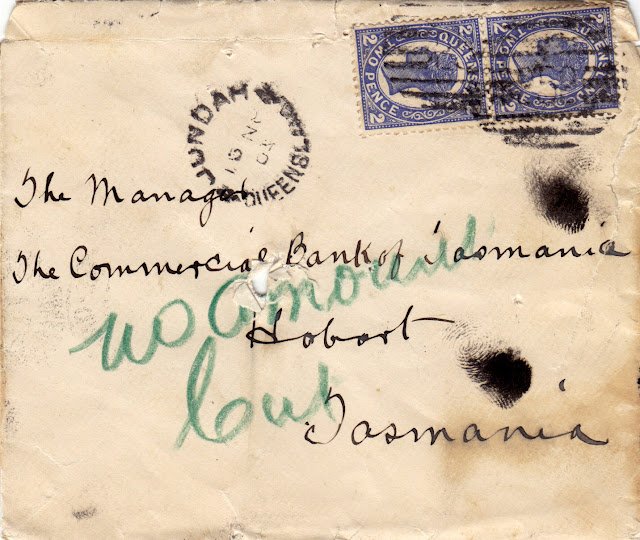 2 TWO PENCE 2 QUEENSLAND
2 TWO PENCE 2 QUEENSLAND
JUNDAH
16 NO
QUEENSL
The Manager
The Commercial Bank of Tasmania
no amount
Hobart
Cut
Tasmania